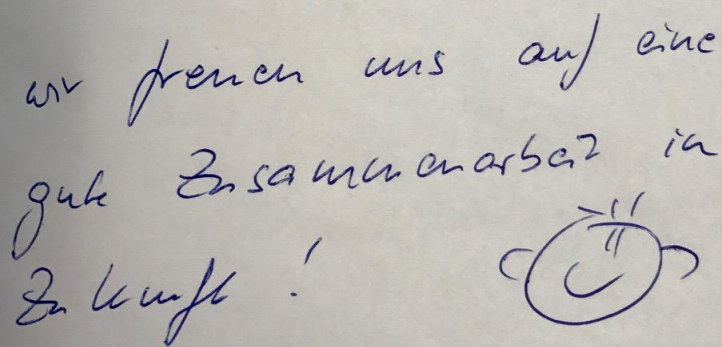 wir freuen uns auf eine
gute Zusammenarbeit in
Zukunft !